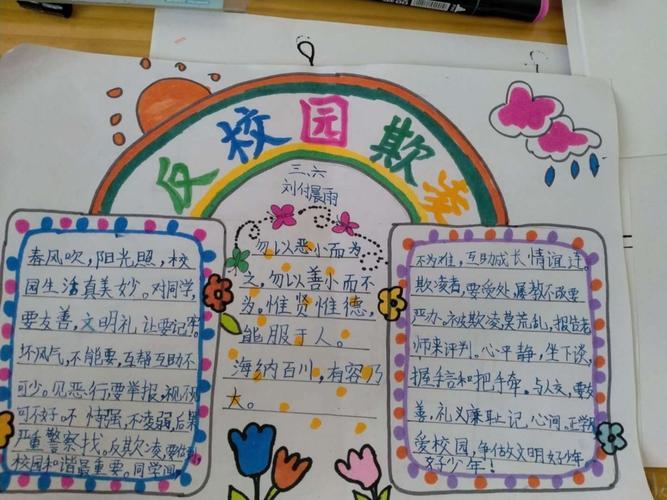 反校园欺凌
三.六
刘付晨雨
春风吹，阳光照，校
园生活真美妙。对同学，
要友善，文明礼让要记牢。
坏风气，不能要，互帮互助不
可少。见恶行要举报，视不
可不好。不恃强，不凌弱，后果
严重警察找。反欺凌要做到，
校园和谐最重要。同学间
勿以恶小而为
之，勿以善小而不
为。惟贤惟德，
能服于人。
海纳百川，有容乃
大。
不为难，互助成长情谊连。
欺凌者，要受处，屡教不改要
严办。被欺凌莫荒乱，报告老
师来评判。心平静，坐下谈，
握手言和把手牵。与人交，要友
善，礼义廉耻记心间。正学
爱校园，争做文明好少年
好少年！